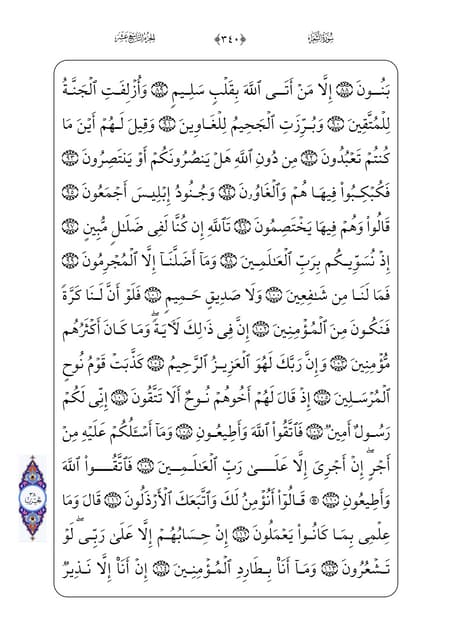 سُورَةُ الشُّعَرَاءِ ﴿٣٤٠﴾ الجُزءُ التَّاسِعَ عَشَرَ
بَنُونَ ٨٨ إِلَّا مَنْ أَتَى ٱللَّهَ بِقَلْبٍ سَلِيمٍ ٨٩ وَأُزْلِفَتِ ٱلْجَنَّةُ
لِلْمُتَّقِينَ ٩٠ وَبُرِّزَتِ ٱلْجَحِيمُ لِلْغَاوِينَ ٩١ وَقِيلَ لَهُمْ أَيْنَ مَا
كُنتُمْ تَعْبُدُونَ ٩٢ مِن دُونِ ٱللَّهِ هَلْ يَنصُرُونَكُمْ أَوْ يَنتَصِرُونَ ٩٣
فَكُبْكِبُوا۟ فِيهَا هُمْ وَٱلْغَاوُۥنَ ٩٤ وَجُنُودُ إِبْلِيسَ أَجْمَعُونَ ٩٥
قَالُوا۟ وَهُمْ فِيهَا يَخْتَصِمُونَ ٩٦ تَٱللَّهِ إِن كُنَّا لَفِى ضَلَٰلٍ مُّبِينٍ ٩٧
إِذْ نُسَوِّيكُم بِرَبِّ ٱلْعَٰلَمِينَ ٩٨ وَمَآ أَضَلَّنَآ إِلَّا ٱلْمُجْرِمُونَ ٩٩
فَمَا لَنَا مِن شَٰفِعِينَ ١٠٠ وَلَا صَدِيقٍ حَمِيمٍ ١٠١ فَلَوْ أَنَّ لَنَا كَرَّةً
فَنَكُونَ مِنَ ٱلْمُؤْمِنِينَ ١٠٢ إِنَّ فِى ذَٰلِكَ لَءَايَةً ۖ وَمَا كَانَ أَكْثَرُهُم
مُّؤْمِنِينَ ١٠٣ وَإِنَّ رَبَّكَ لَهُوَ ٱلْعَزِيزُ ٱلرَّحِيمُ ١٠٤ كَذَّبَتْ قَوْمُ نُوحٍ
ٱلْمُرْسَلِينَ ١٠٥ إِذْ قَالَ لَهُمْ أَخُوهُمْ نُوحٌ أَلَا تَتَّقُونَ ١٠٦ إِنِّى لَكُمْ
رَسُولٌ أَمِينٌ ١٠٧ فَٱتَّقُوا۟ ٱللَّهَ وَأَطِيعُونِ ١٠٨ وَمَآ أَسْـَٔلُكُمْ عَلَيْهِ مِنْ
أَجْرٍ ۖ إِنْ أَجْرِىَ إِلَّا عَلَىٰ رَبِّ ٱلْعَٰلَمِينَ ١٠٩ فَٱتَّقُوا۟ ٱللَّهَ
وَأَطِيعُونِ ١١٠ ۞ قَالُوٓا۟ أَنُؤْمِنُ لَكَ وَٱتَّبَعَكَ ٱلْأَرْذَلُونَ ١١١ قَالَ وَمَا
عِلْمِى بِمَا كَانُوا۟ يَعْمَلُونَ ١١٢ إِنْ حِسَابُهُمْ إِلَّا عَلَىٰ رَبِّى ۖ لَوْ
تَشْعُرُونَ ١١٣ وَمَآ أَنَا۠ بِطَارِدِ ٱلْمُؤْمِنِينَ ١١٤ إِنْ أَنَا۠ إِلَّا نَذِيرٌ